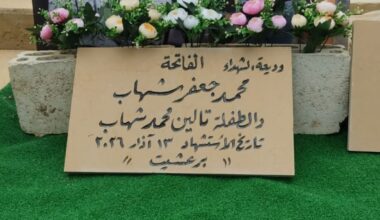 وديعة الشهداء الفاتحة
محمد جعفر شهاب
والطفلة تالين محمد شهاب
تاريخ الاستشهاد ١٣ آذار ٢٠٢٦
" برعشيت "